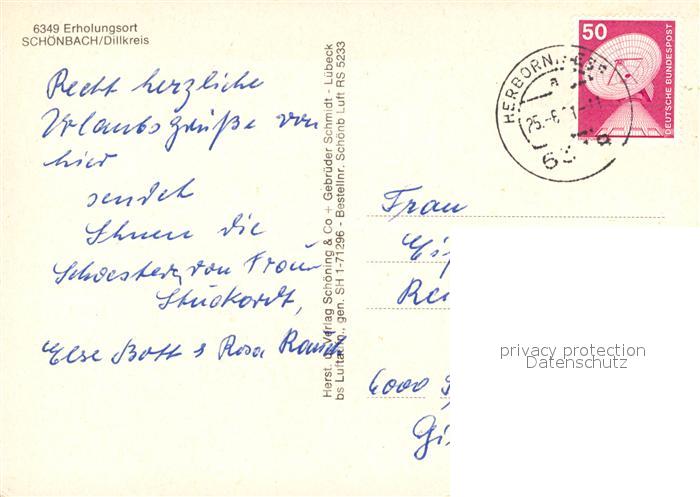 6349 Erholungsort
SCHÖNBACH/Dillkreis
Recht herzliche
Urlaubsgrüße von
hier
sendet
Ihnen die
Schwester von Frau
Stuckardt,
Else Bott & Rosa
Herst. u. Verlag Schöning & Co + Gebrüder Schmidt - Lübeck
bs Luftaufn., gen. SH 1-71296 - Bestellnr. Schönb Luft RS 5233
50
DEUTSCHE BUNDESPOST
HERBORN, HESS
25.-6.
Frau
6000
privacy protection
Datenschutz